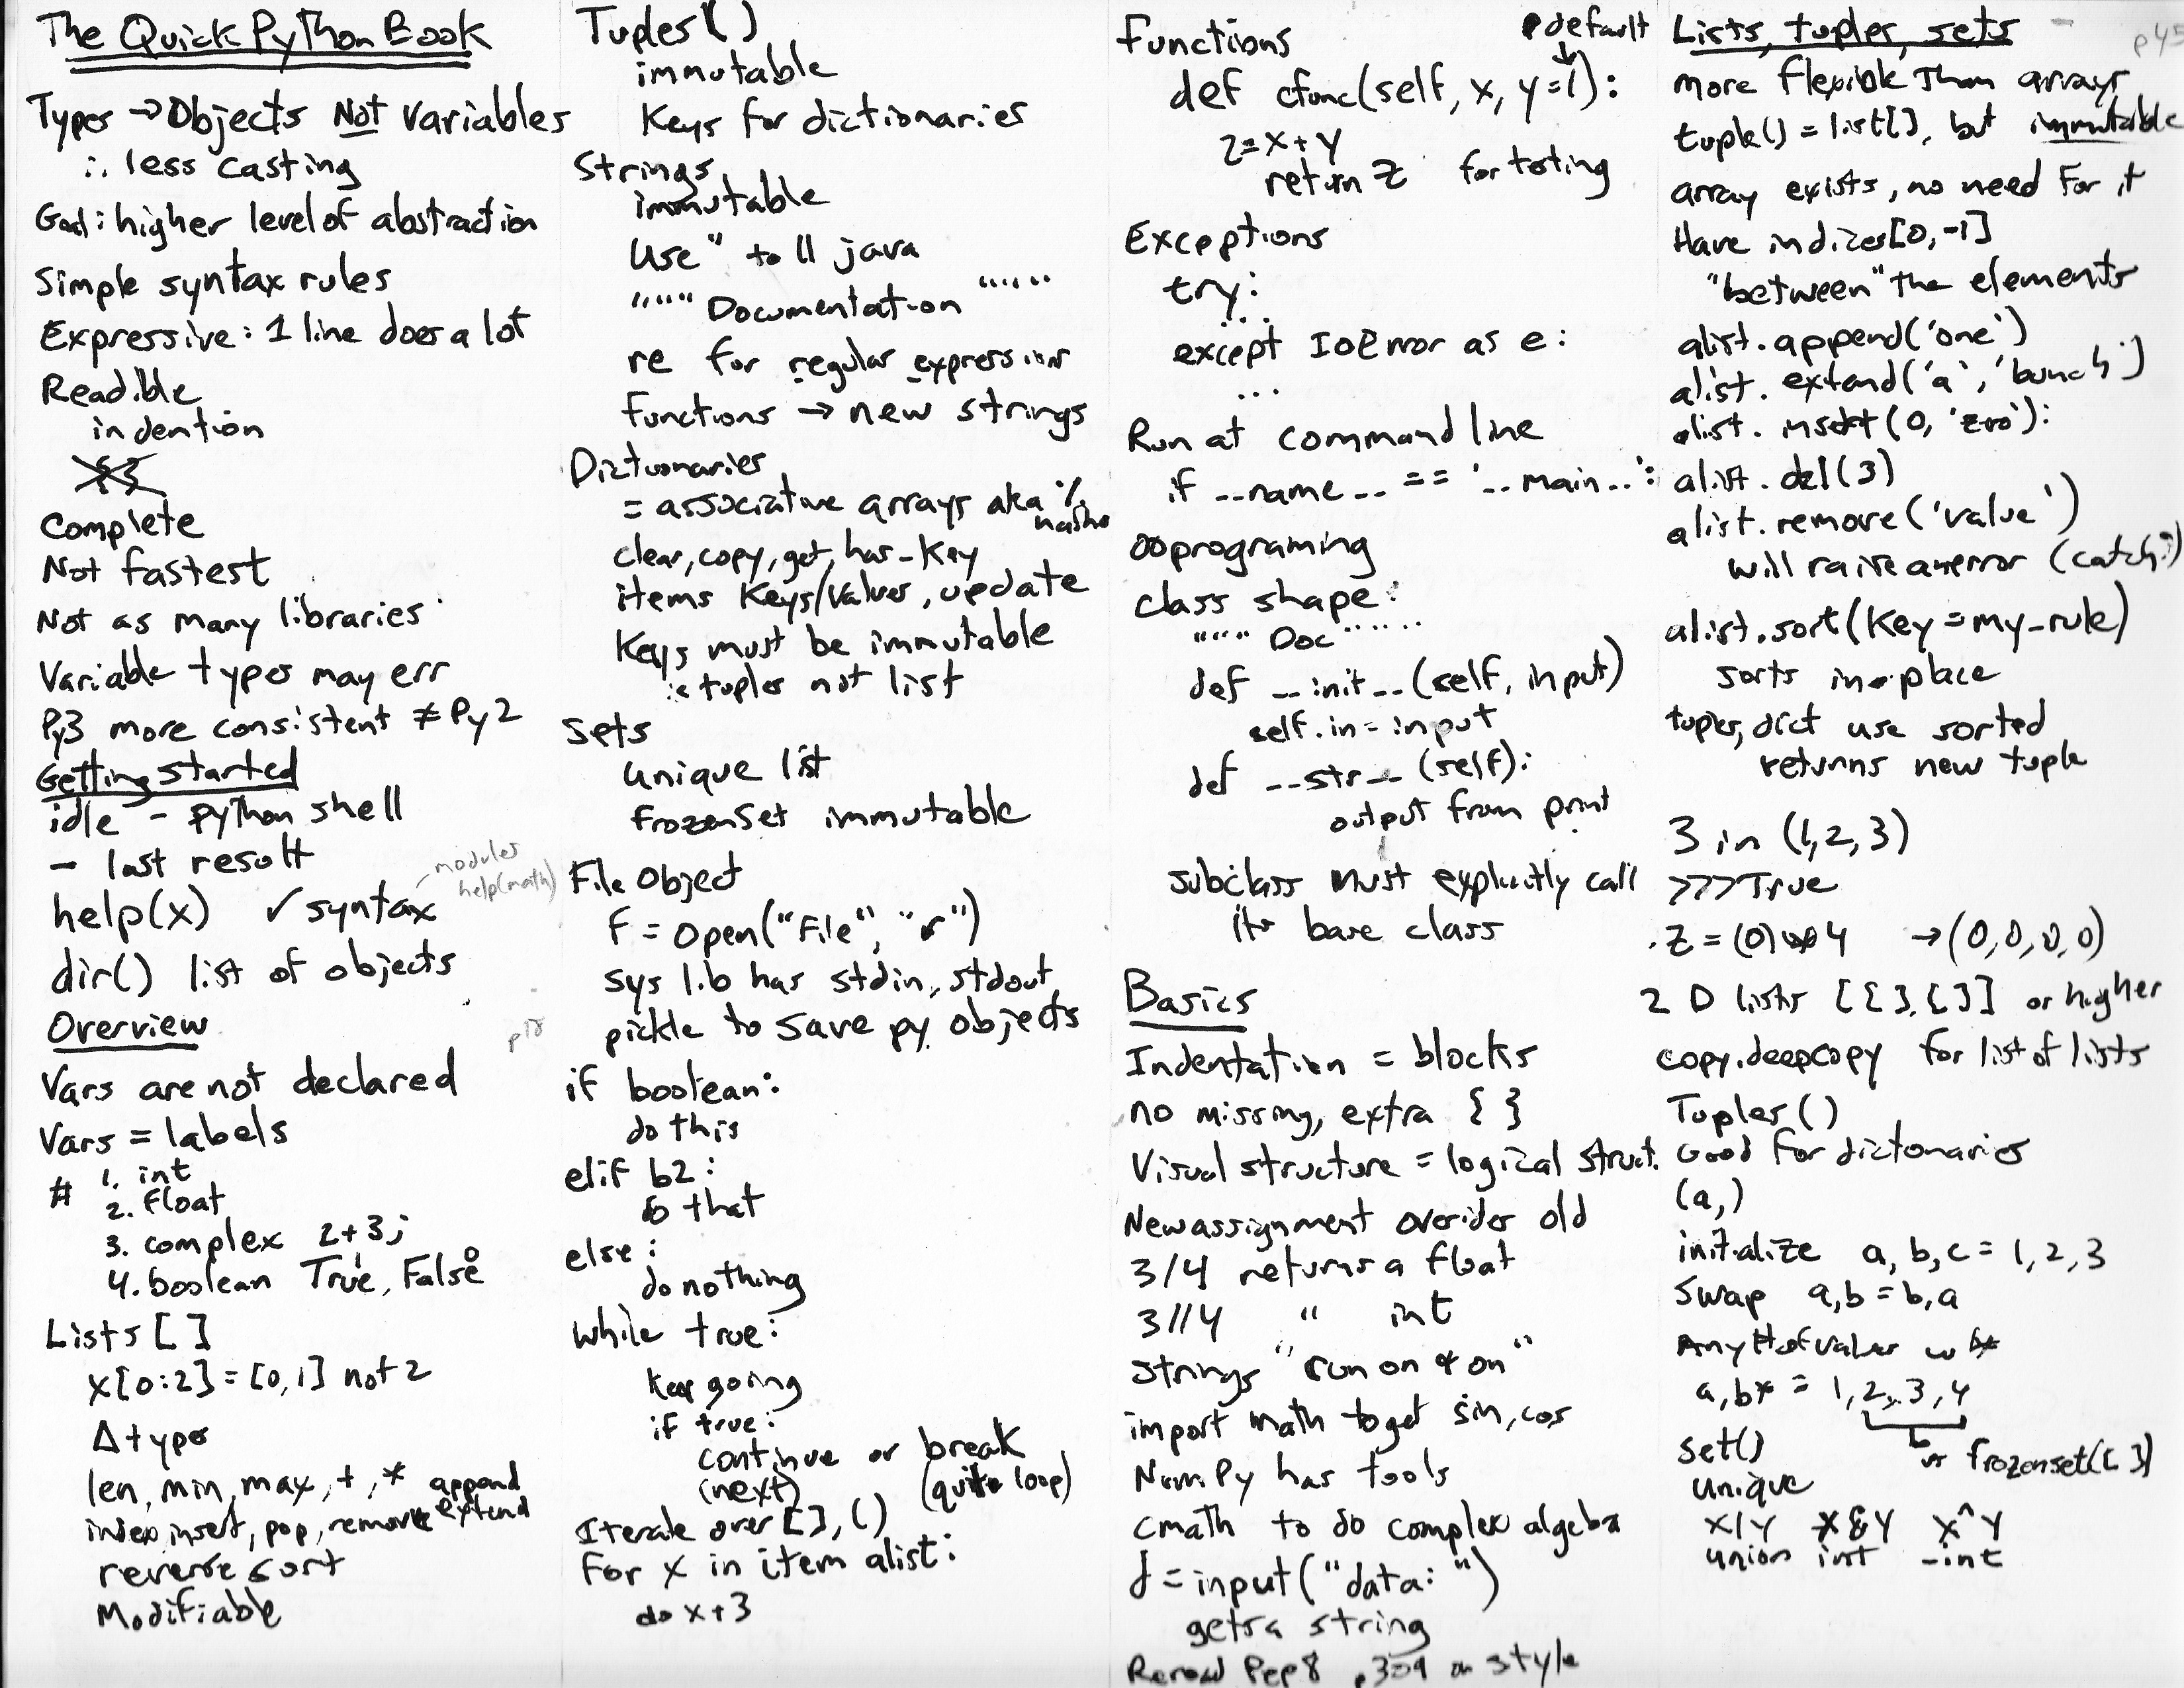 The Quick Python Book
Types → Objects Not Variables
∴ less casting
Goal: higher level of abstraction
Simple syntax rules
Expressive: 1 line does a lot
Readible
indention
Complete
Not fastest
Not as many libraries
Variable types may err
Py3 more consistent ≠ Py2
Getting started
idle - python shell
_ last result
modules
help(math)
help(x) ✓ syntax
dir() list of objects
Overview
p18
Vars are not declared
Vars = labels
# 1. int
2. float
3. complex 2+3j
4. boolean True, False
1 0
Lists []
x[0:2] = [0,1] not 2
Δ types
len, min, max, +, * append
index, insert, pop, remove extend
reverse sort
Modifiable
Tuples ()
immutable
Keys for dictionaries
Strings
immutable
Use " to || java
""" Documentation """
re for regular expression
functions → new strings
Dictionaries
= associative arrays aka %
hashs
clear, copy, get, has_key
items keys/values, update
Keys must be immutable
ie tuples not list
Sets
unique list
frozenset immutable
File Object
f = open("File", "r")
sys lib has stdin, stdout
pickle to save py objects
if boolean:
do this
elif b2:
do that
else:
do nothing
while true:
keep going
if true:
continue or break
(next) (quits loop)
Iterate over [], ()
for x in item alist:
do x+3
Functions
default
def cfunc(self, x, y=1):
z=x+y
return z for testing
Exceptions
try:
...
except IOError as e:
...
Run at command line
if __name__ == '__main__':
OO programing
class shape:
""" Doc """
def __init__(self, input)
self.in = input
def __str__(self):
output from print
subclass must explicitly call
its base class
Basics
Indentation = blocks
no missing, extra { }
Visual structure = logical struct.
New assignment overides old
3/4 returns a float
3//4 " int
strings "run on & on"
import math to get sin, cos
NumPy has tools
cmath to do complex algebra
d = input("data: ")
gets a string
Reread Pep8 p309 on style
Lists, tuples, sets
p45
more flexible than arrays
tuple() = list[], but immutable
array exists, no need for it
Have indices [0,-1]
"between" the elements
alist.append('one')
alist.extend('a', 'bunch')
alist.insert(0, 'zero'):
alist.del(3)
alist.remove('value')
will raise an error (catch?)
alist.sort(key=my_rule)
sorts in-place
tuples, dict use sorted
returns new tuple
3 in (1,2,3)
>>>True
z = (0)*4 → (0,0,0,0)
2 D lists [[],[]] or higher
copy.deepcopy for list of lists
Tuples ()
Good for dictonaries
(a,)
initialize a, b, c = 1, 2, 3
swap a,b = b,a
Any # of values w *
a, b* = 1, 2, 3, 4
b
set() or frozenset([])
unique
x|y x&y x^y
union int -int